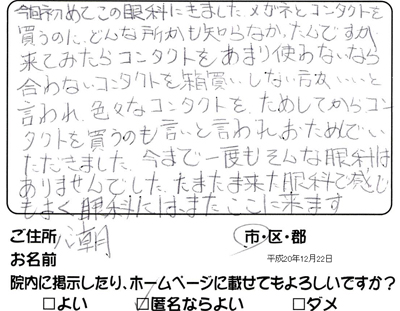 今回初めてこの眼科にきました。メガネとコンタクトを
買うのに、どんな所かも知らなかったんですが、
来てみたらコンタクトをあまり使わないなら
合わないコンタクトを箱買いしない方がいいと
言われ、色々なコンタクトをためしてからコン
タクトを買うのも言いと言われ、おためしでい
ただきました。今まで一度もそんな眼科は
ありませんでした。たまたま来た眼科で感じ
もよく、眼科にはまたここに来ます
ご住所 八潮 市・区・郡
お名前 平成20年12月22日
院内に掲示したり、ホームページに載せてもよろしいですか？
□よい ☑匿名ならよい □ダメ